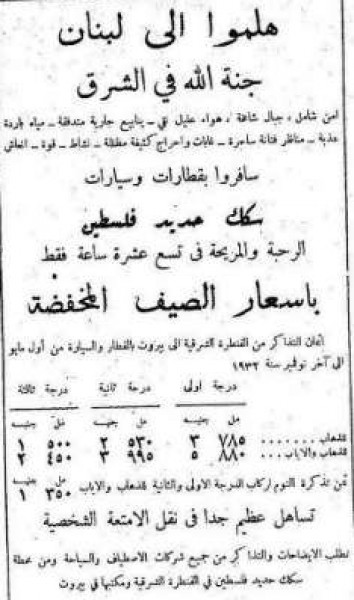 هلموا الى لبنان
جنة الله في الشرق
امن شامل ، جبال شاهقة ، هواء عليل نقي ـ ينابيع جارية متدفقة ـ مياه باردة
عذبة ـ مناظر فتانة ساحرة ـ غابات واحراج كثيفة مظللة ـ نشاط ـ قوة ـ انعاش
سافروا بقطارات وسيارات
سكك حديد فلسطين
الرحبة والمريحة فى تسع عشرة ساعة فقط
باسعار الصيف المخفضة
اثمان التذاكر من القنطرة الشرقية الى بيروت بالقطار والسيارة من أول مايو
الى آخر نوفمبر سنة ١٩٣٢
درجة اولى درجة ثانية درجة ثالثة
مل جنيه مل جنيه مل جنيه
للذهاب ........ ٧٨٥ ٣ ٥٣٠ ٢ ٥٠٠ ١
للذهاب والاياب .. ٨٨٠ ٥ ٩٩٥ ٣ ٤٥٠ ٢
مل جنيه
ثمن تذكرة النوم لركاب الدرجة الاولى والثانية للذهاب والاياب ٣٥٠ ١
تساهل عظيم جدا فى نقل الامتعة الشخصية
تطلب الايضاحات والتذاكر من جميع شركات الاصطياف والسياحة ومن محطة
سكك حديد فلسطين في القنطرة الشرقية ومكتبها في بيروت